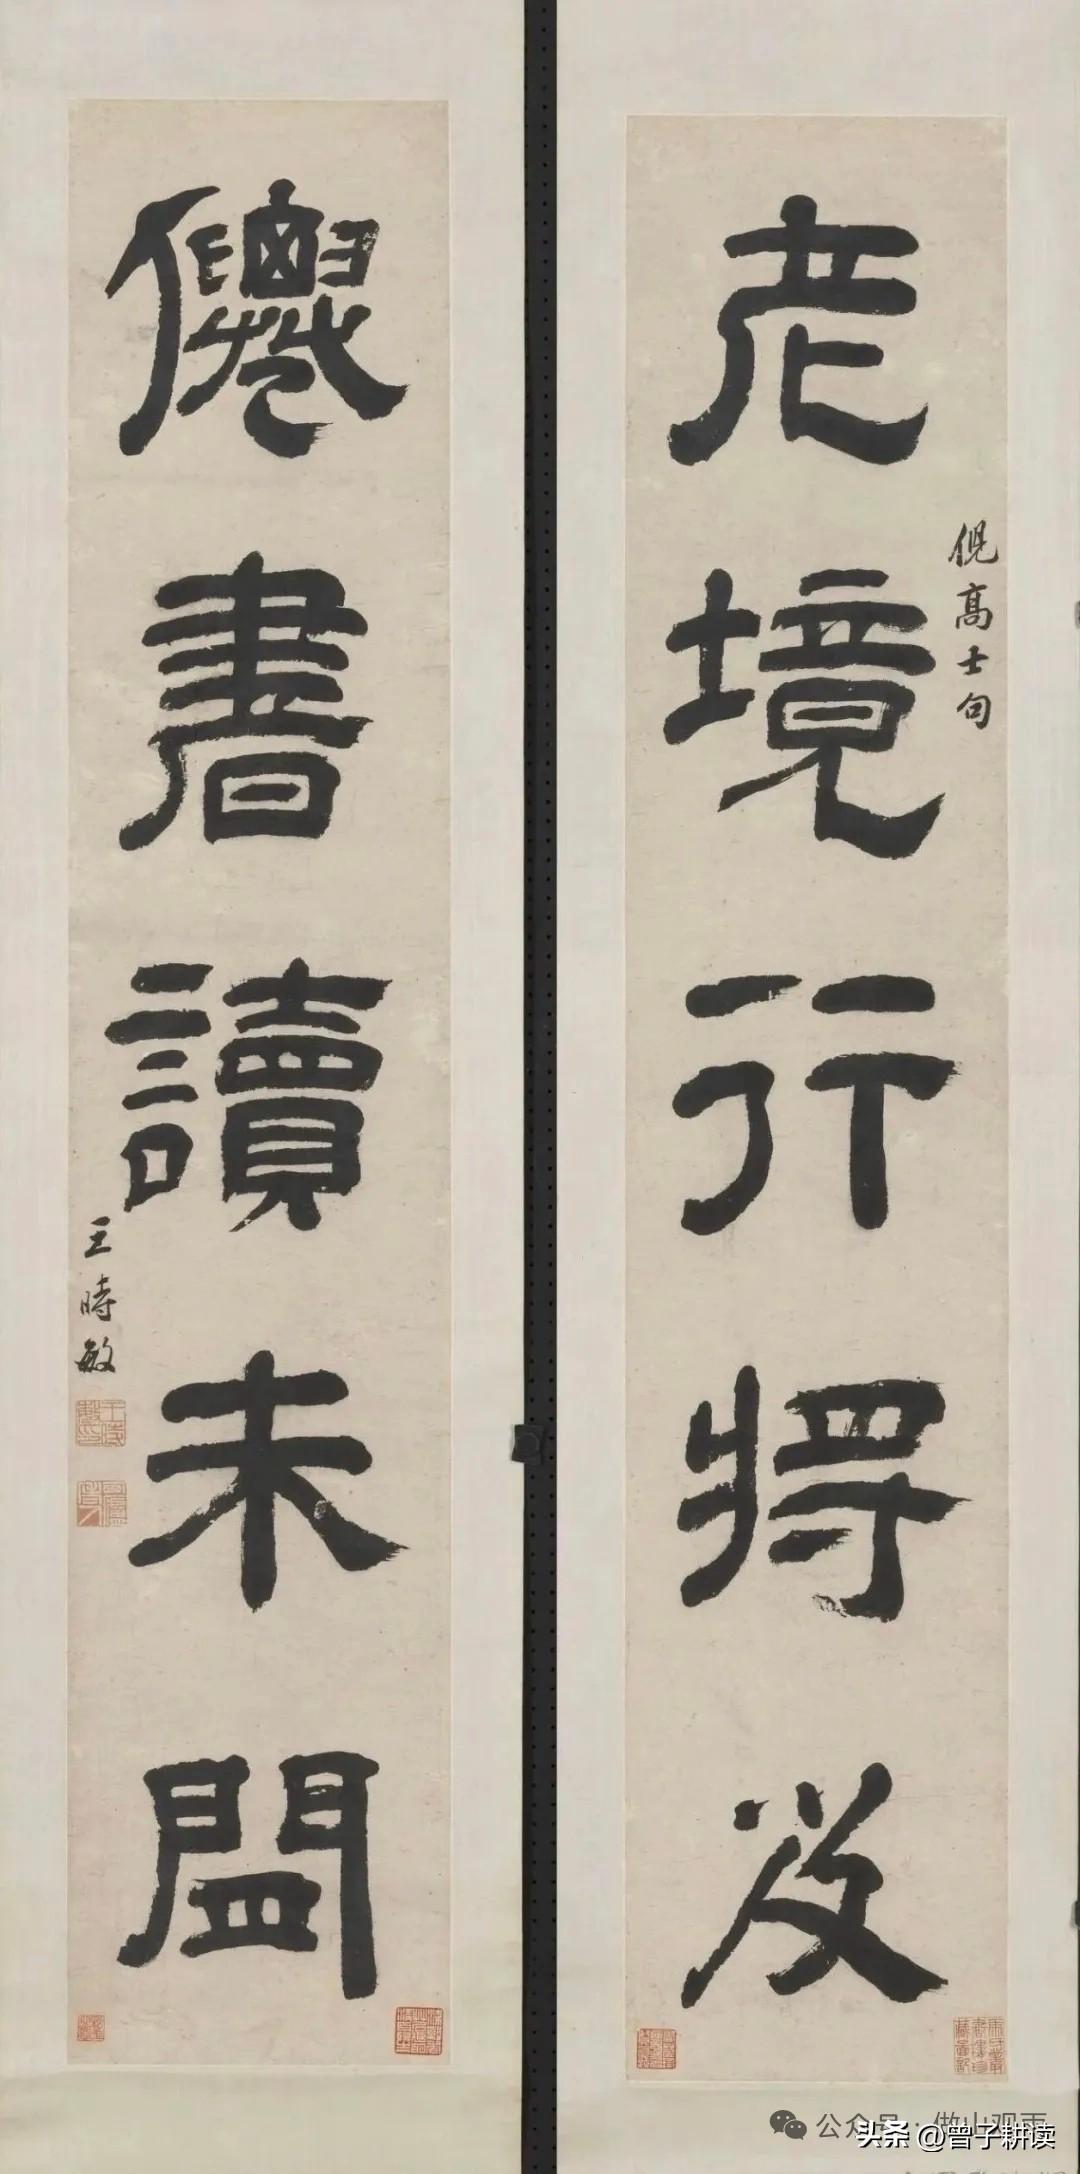 老境行將及
倪高士句
僊書讀未
王時敏
公众号·做山观雨
头条 @曾子耕读